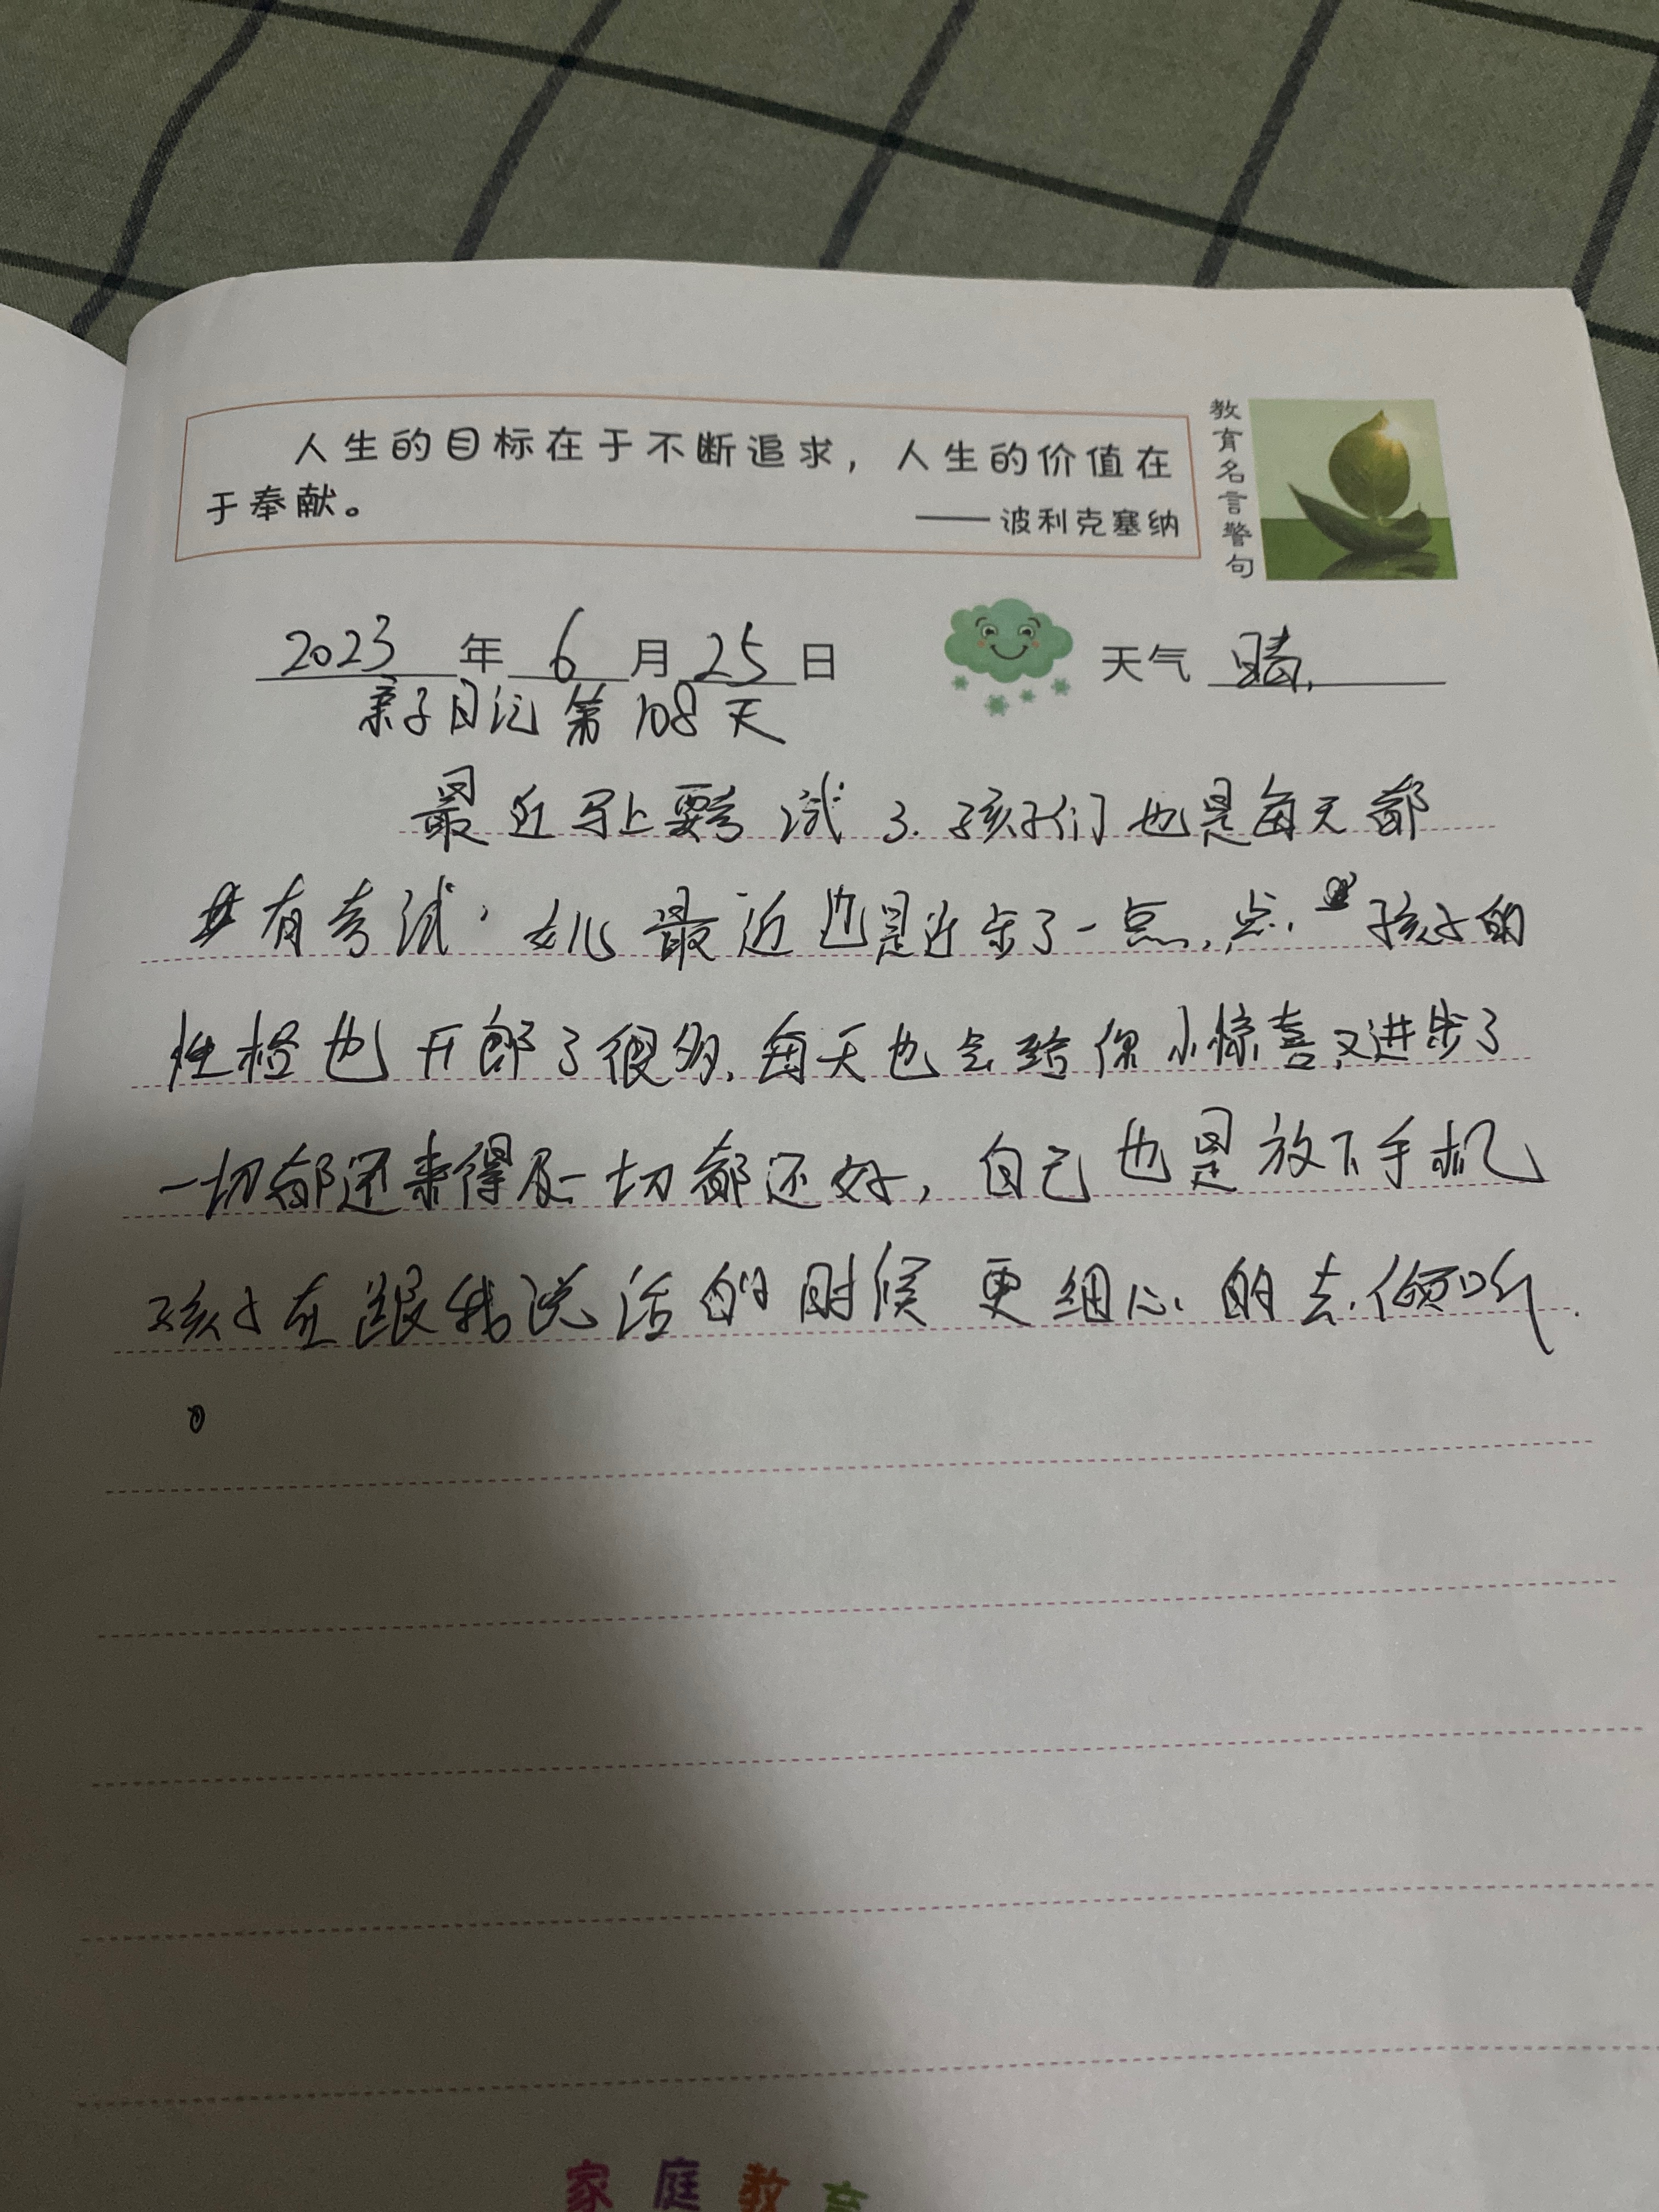 人生的目标在于不断追求，人生的价值在
于奉献。
——波利克塞纳
教育名言警句
2023年6月25日 天气 晴.
亲子日记第108天
最近马上要考试了.孩子们也是每天都
有考试，女儿最近也是进步了一点.点.孩子的
性格也开郎了很多.每天也会给你小惊喜又进步了
一切都还来得及一切都还好，自己也是放下手机
孩子在跟我说话的时候更细心的去倾听.
。
家庭教育